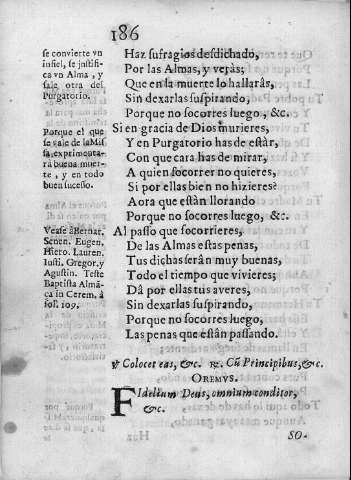 186
se convierte vn
infiel, se justifi-
ca vn Alma, y
sale otra del
Purgatorio.
Porque el que
se vale de la Mis
sa, exprimenta-
rà buena muer-
te, y en todo
buen suceso.
Vease à Bernar.
Senen. Eugen.
Hiero. Lauren.
Iusti. Gregor. y
Agustin. Teste
Baptista Almã-
ça in Cerem, à
fol. 109.
Haz sufragios desdichado,
Por las Almas, y veràs;
Que en la muerte lo hallaràs,
Sin dexarlas suspirando,
Porque no socorres luego, &c.
Si en gracia de Dios murieres,
Y en Purgatorio has de estàr,
Con que cara has de mirar,
A quien socorrer no quieres,
Si por ellas bien no hizieres?
Aora que estàn llorando
Porque no socorres luego, &c.
Al passo que socorrieres,
De las Almas estas penas,
Tus dichas seràn muy buenas,
Todo el tiempo que vivieres;
Dà por ellas tus averes,
Sin dexarlas suspirando,
Porque no socorres luego,
Las penas que estàn passando.
℣ Colocet eas, &c. ℞. Cũ Principibus, &c.
OREMVS.
FIdelium Deus, omnium conditor,
&c.
SO-